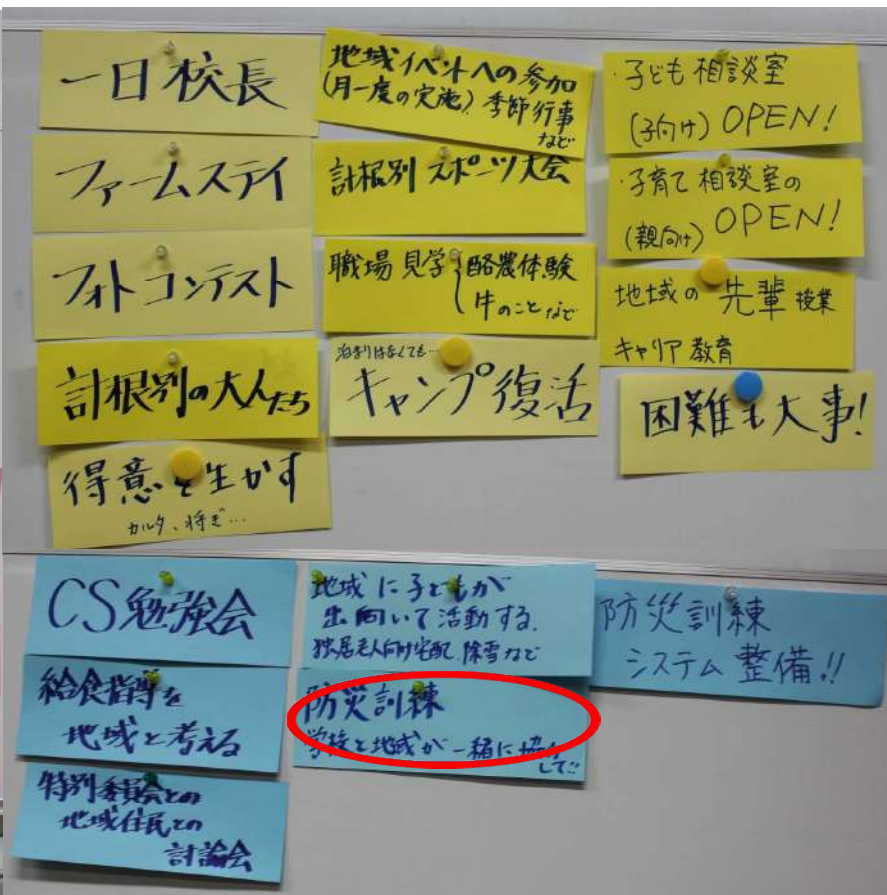 一日校長
ファームステイ
フォトコンテスト
計根別の大人たち
得意を生かす
カルタ、将ぎ…
地域イベントへの参加
(月一度の実施) 季節行事
など
計根別 スポーツ大会
職場見学 酪農体験
牛のことなど
泊まりはなくても…
キャンプ復活
・子ども相談室
(子向け) OPEN!
・子育て相談室の
(親向け) OPEN!
地域の先輩授業
キャリア教育
困難も大事!
CS勉強会
給食指導を
地域と考える
特別委員会との
地域住民との
討論会
地域に子どもが
出向いて活動する.
独居老人向け宅配 除雪など
防災訓練
学校と地域が一緒に協力
して!!
防災訓練
システム整備!!